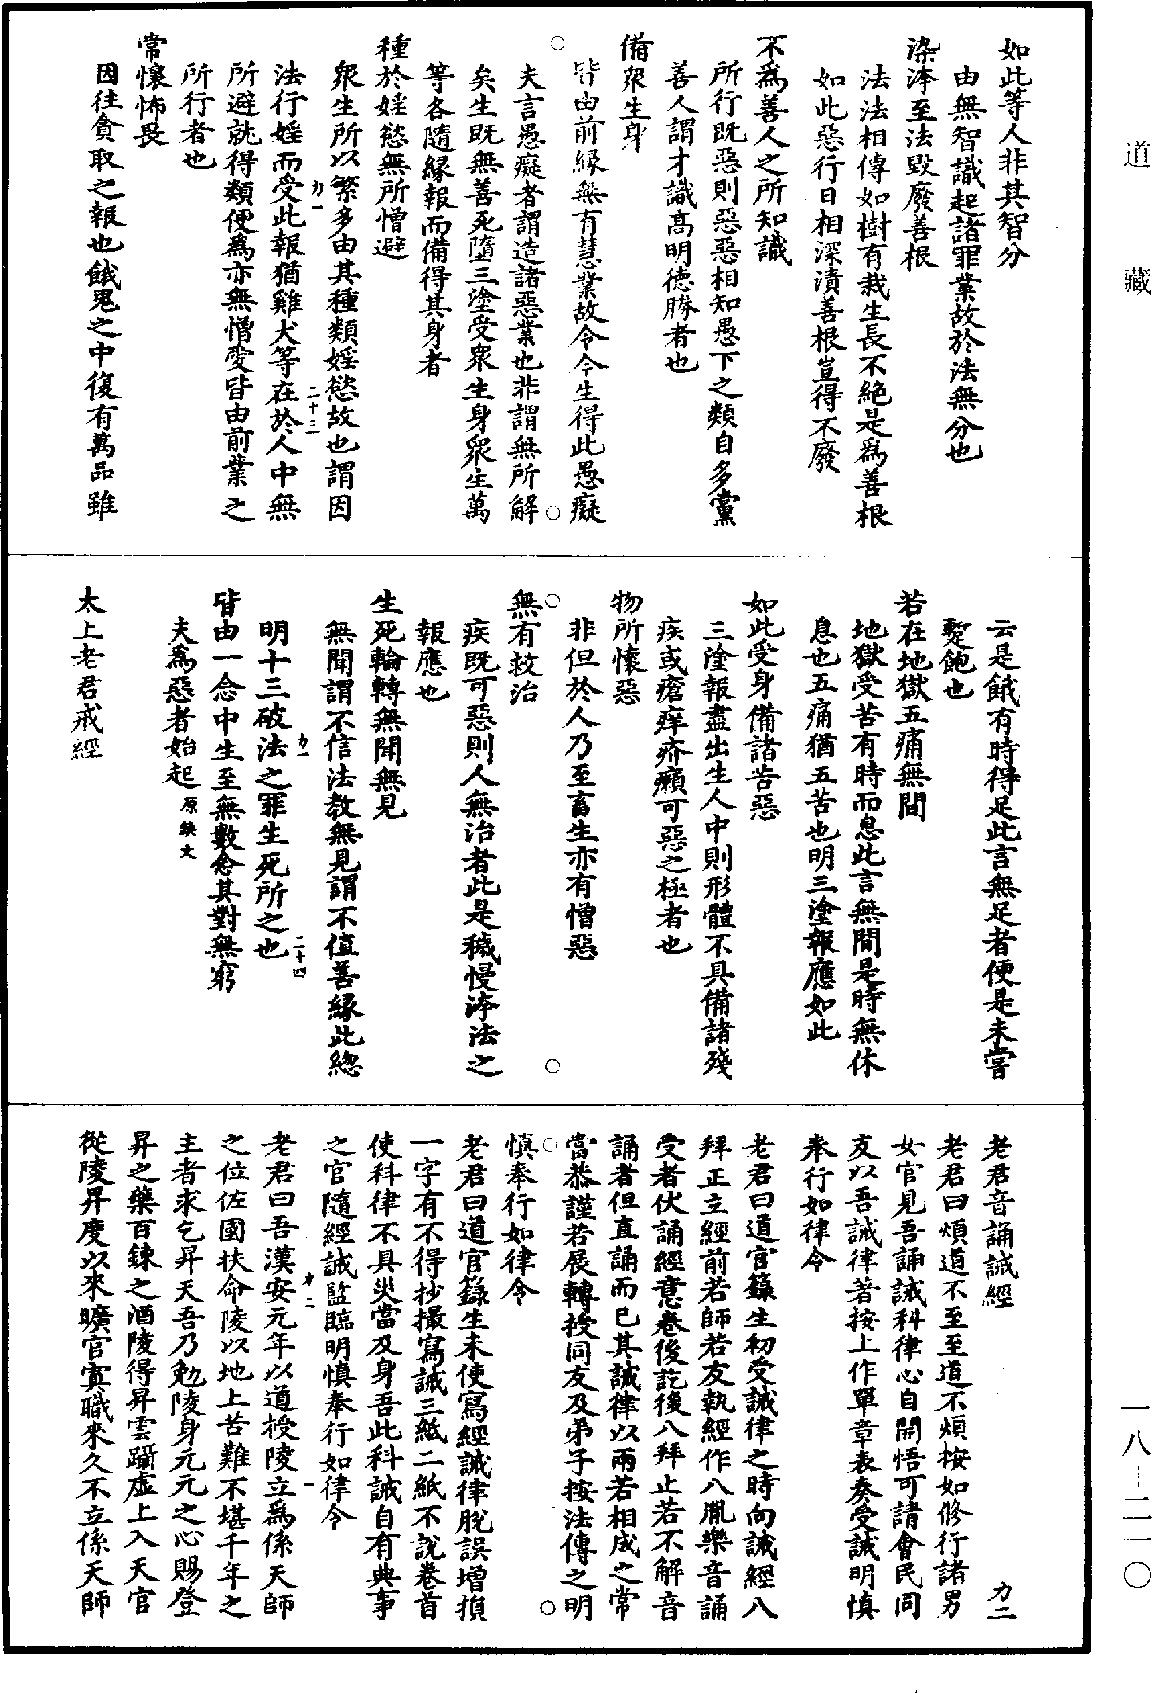 道藏
一八—二一〇
如此等人非其智分
由無智識起諸罪業故於法無分也
染淬至法毀廢善根
法法相傳如樹有栽生長不絶是爲善根
如此惡行日相深漬善根豈得不廢
不爲善人之所知識
所行既惡則惡惡相知愚下之類自多黨
善人謂才識高明德勝者也
備衆生身
皆由前緣無有慧業故令今生得此愚癡
夫言愚癡者謂造諸惡業也非謂無所解
矣生既無善死墮三塗受衆生身衆生萬
等各隨緣報而備得其身者
種於婬慾無所憎避
衆生所以繁多由其種類婬慾故也謂因
法行婬而受此報猶雞犬等在於人中無
力一
二十三
所避就得類便爲亦無憎愛皆由前業之
所行者也
常懷怖畏
因往貪取之報也餓鬼之中復有萬品雖
云是餓有時得足此言無足者便是未嘗
蹔飽也
若在地獄五痛無間
地獄受苦有時而息此言無間是時無休
息也五痛猶五苦也明三塗報應如此
如此受身備諸苦惡
三塗報盡出生人中則形體不具備諸殘
疾或瘡痒疥癩可惡之極者也
物所懷惡
非但於人乃至畜生亦有憎惡
無有救治
疾既可惡則人無治者此是穢慢淬法之
報應也
生死輪轉無聞無見
無聞謂不信法教無見謂不值善緣此總
明十三破法之罪生死所之也
力一
二十四
皆由一念中生至無數念其對無窮
夫爲惡者始起原缺文
太上老君戒經
老君音誦誡經
力二
老君曰煩道不至至道不煩按如修行諸男
女官見吾誦誡科律心自開悟可請會民同
友以吾誡律著按上作單章表奏受誡明慎
奉行如律令
老君曰道官籙生初受誡律之時向誡經八
拜正立經前若師若友執經作八胤樂音誦
受者伏誦經意卷後訖後八拜止若不解音
誦者但直誦而已其誡律以兩若相成之常
當恭謹若展轉授同友及弟子按法傳之明
慎奉行如律令
老君曰道官籙生未使寫經誡律脫誤增損
一字有不得抄撮寫誡三紙二紙不說卷首
使科律不具災當及身吾此科誡自有典事
之官隨經誡監臨明慎奉行如律令
老君曰吾漢安元年以道授陵立爲係天師
力二
一
之位佐國扶命陵以地上苦難不堪千年之
主者求乞昇天吾乃勉陵身元元之心賜登
昇之藥百鍊之酒陵得昇雲躡虛上入天官
從陵昇度以來曠官寘職來久不立係天師